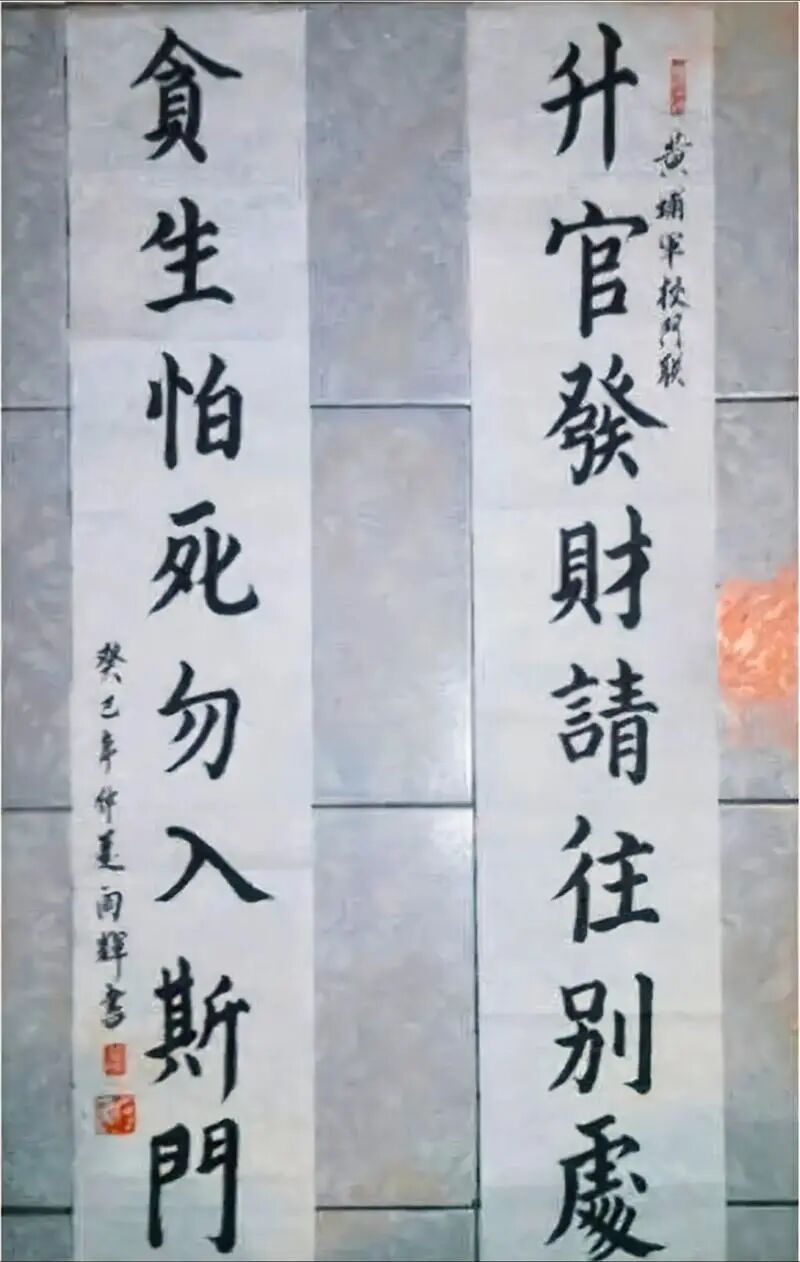 黄埔軍校門联
升官發財請往别處
貪生怕死勿入斯門
癸巳年仲夏雨輝書